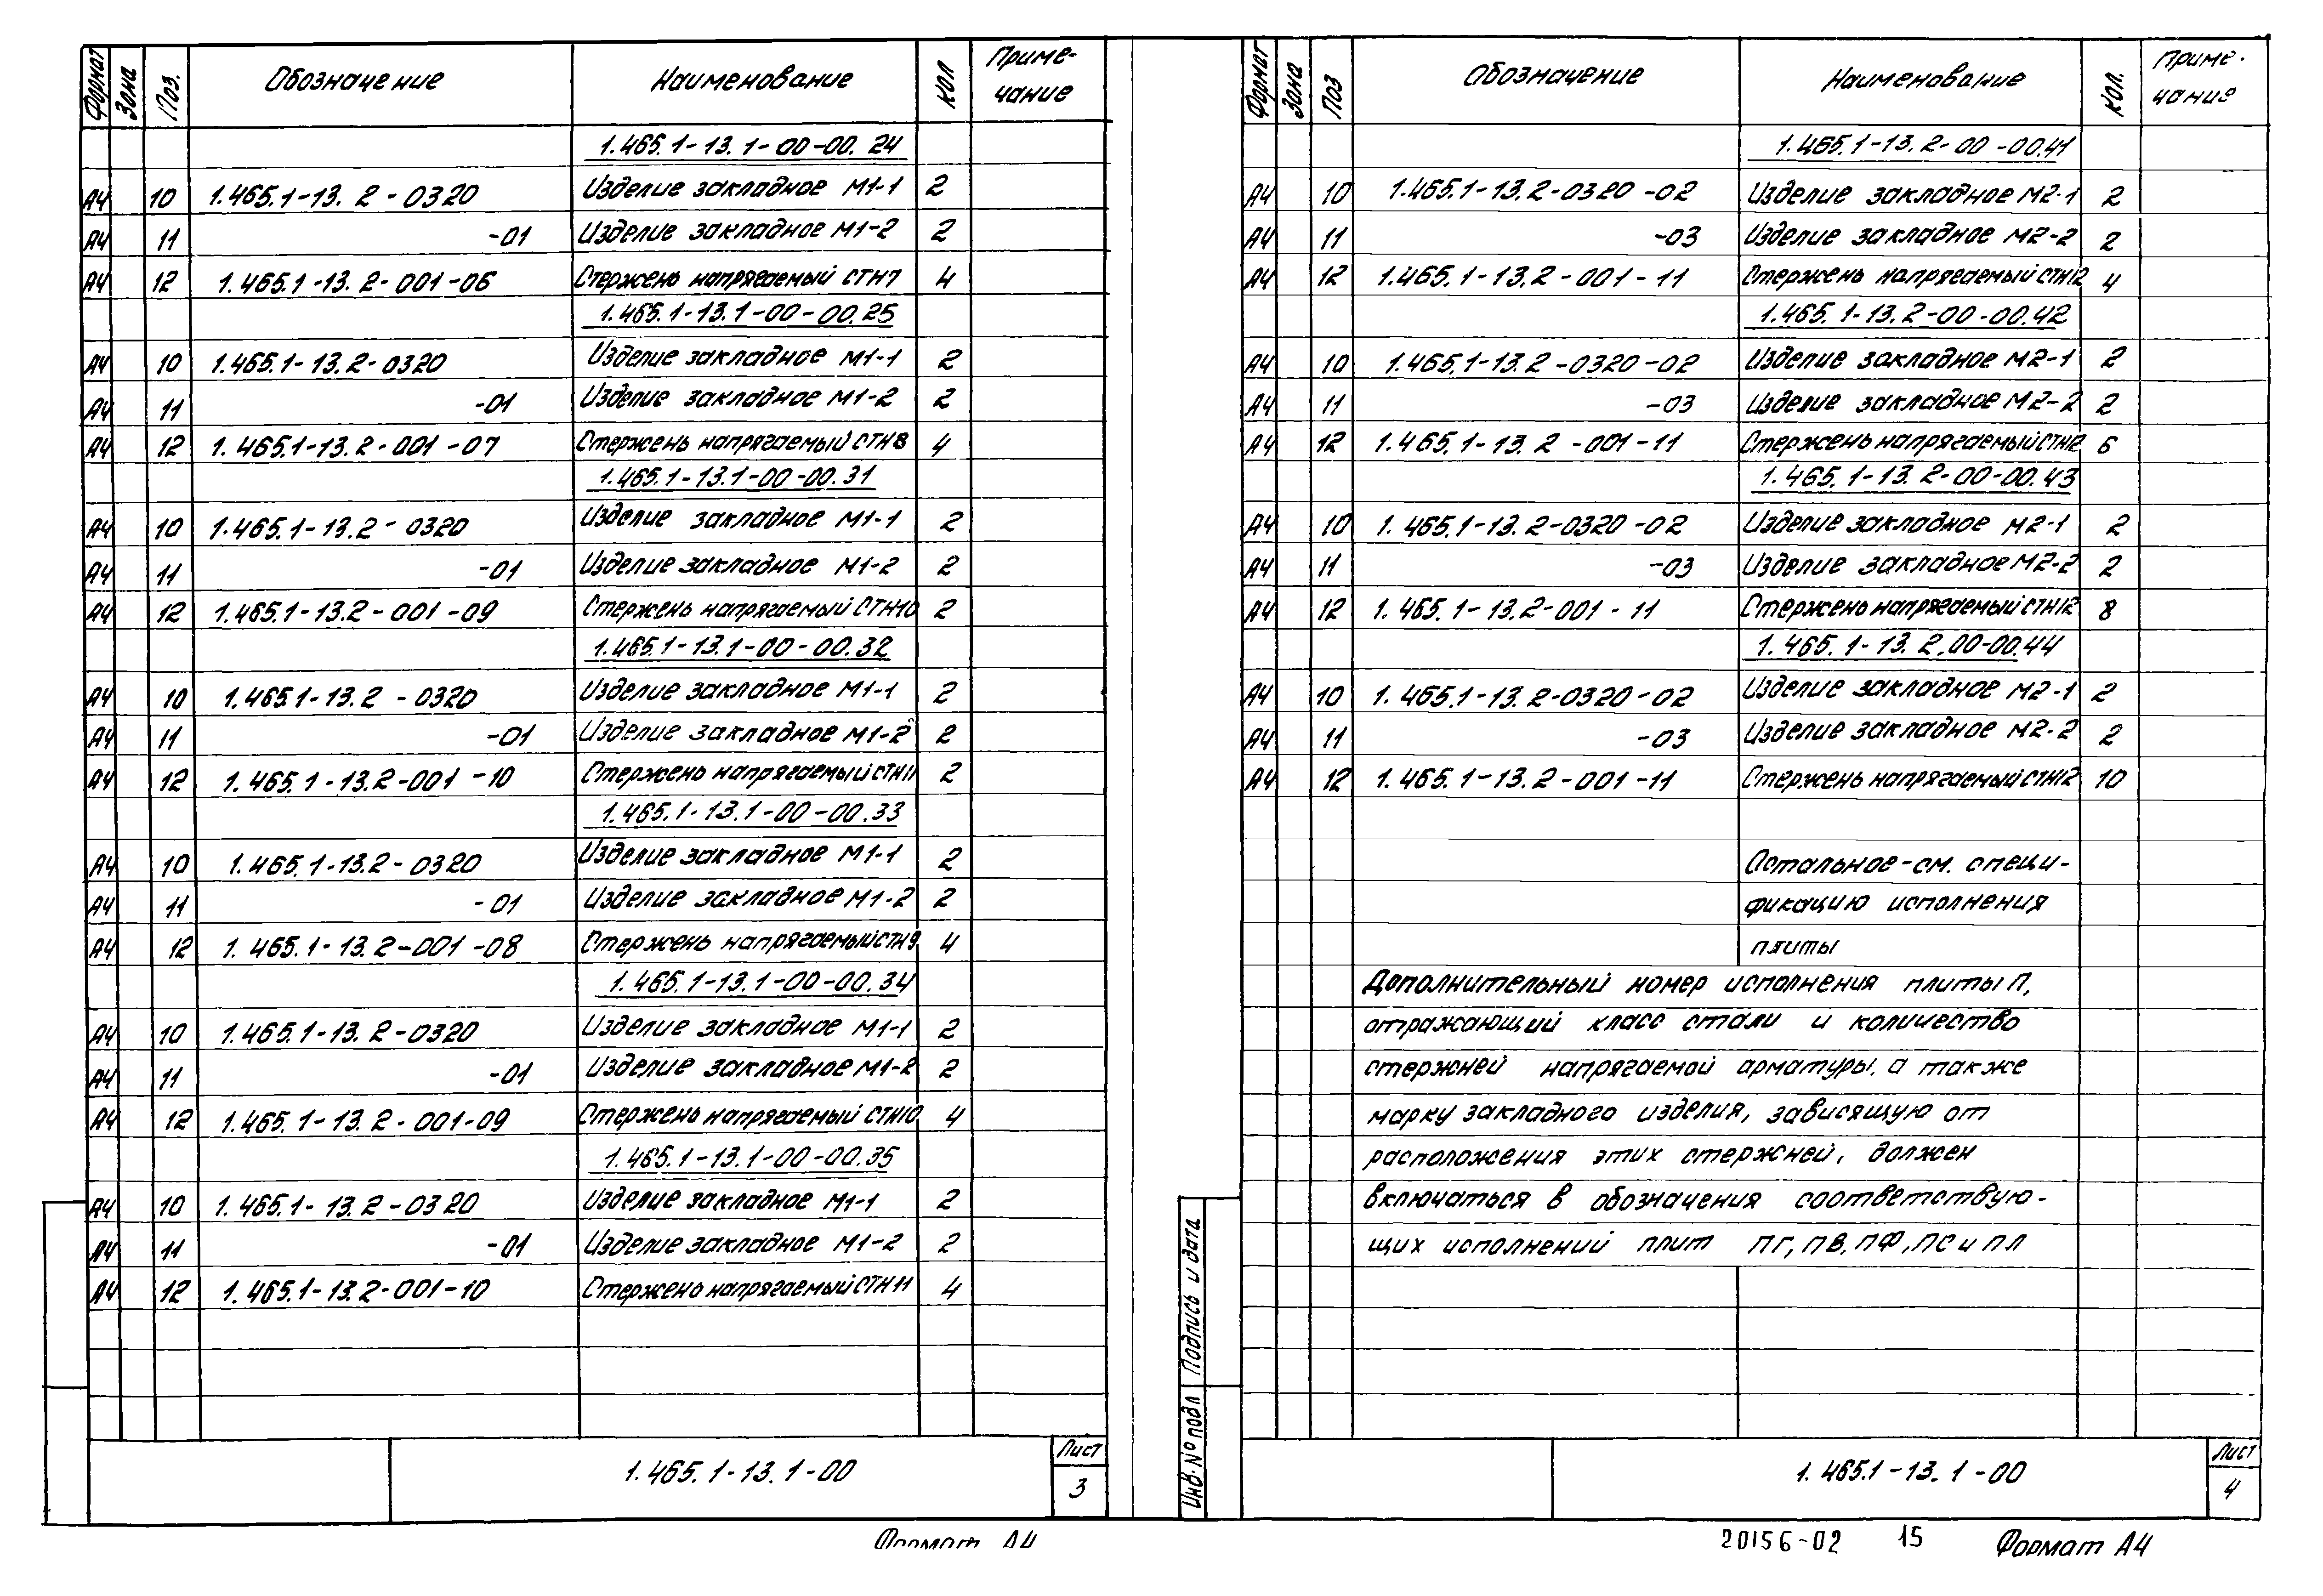 Формат Зона Поз. Обозначение Наименование Кол Приме-
чание
1.465.1-13.1-00-00.24
А4 10 1.465.1-13.2-0320 Изделие закладное М1-1 2
А4 11 -01 Изделие закладное М1-2 2
А4 12 1.465.1-13.2-001-06 Стержень напрягаемый СТН7 4
1.465.1-13.1-00-00.25
А4 10 1.465.1-13.2-0320 Изделие закладное М1-1 2
А4 11 -01 Изделие закладное М1-2 2
А4 12 1.465.1-13.2-001-07 Стержень напрягаемый СТН8 4
1.465.1-13.1-00-00.31
А4 10 1.465.1-13.2-0320 Изделие закладное М1-1 2
А4 11 -01 Изделие закладное М1-2 2
А4 12 1.465.1-13.2-001-09 Стержень напрягаемый СТН10 2
1.465.1-13.1-00-00.32
А4 10 1.465.1-13.2-0320 Изделие закладное М1-1 2
А4 11 -01 Изделие закладное М1-2 2
А4 12 1.465.1-13.2-001-10 Стержень напрягаемый СТН11 2
1.465.1-13.1-00-00.33
А4 10 1.465.1-13.2-0320 Изделие закладное М1-1 2
А4 11 -01 Изделие закладное М1-2 2
А4 12 1.465.1-13.2-001-08 Стержень напрягаемый СТН9 4
1.465.1-13.1-00-00.34
А4 10 1.465.1-13.2-0320 Изделие закладное М1-1 2
А4 11 -01 Изделие закладное М1-2 2
А4 12 1.465.1-13.2-001-09 Стержень напрягаемый СТН10 4
1.465.1-13.1-00-00.35
А4 10 1.465.1-13.2-0320 Изделие закладное М1-1 2
А4 11 -01 Изделие закладное М1-2 2
А4 12 1.465.1-13.2-001-10 Стержень напрягаемый СТН11 4
1.465.1-13.1-00
Лист
3
Формат А4
Формат Зона Поз Обозначение Наименование Кол. Приме-
чания
1.465.1-13.2-00-00.41
А4 10 1.465.1-13.2-0320-02 Изделие закладное М2-1 2
А4 11 -03 Изделие закладное М2-2 2
А4 12 1.465.1-13.2-001-11 Стержень напрягаемый СТН12 4
1.465.1-13.2-00-00.42
А4 10 1.465.1-13.2-0320-02 Изделие закладное М2-1 2
А4 11 -03 Изделие закладное М2-2 2
А4 12 1.465.1-13.2-001-11 Стержень напрягаемый СТН12 6
1.465.1-13.2-00-00.43
А4 10 1.465.1-13.2-0320-02 Изделие закладное М2-1 2
А4 11 -03 Изделие закладное М2-2 2
А4 12 1.465.1-13.2-001-11 Стержень напрягаемый СТН12 8
1.465.1-13.2.00-00.44
А4 10 1.465.1-13.2-0320-02 Изделие закладное М2-1 2
А4 11 -03 Изделие закладное М2-2 2
А4 12 1.465.1-13.2-001-11 Стержень напрягаемый СТН12 10
Остальное-см. специ-
фикацию исполнения
плиты
Дополнительный номер исполнения плиты П,
отражающий класс стали и количество
стержней напрягаемой арматуры, а также
марку закладного изделия, зависящую от
расположения этих стержней, должен
включаться в обозначения соответствую-
щих исполнений плит ПГ, ПВ, ПФ, ПС и ПЛ
Инв.№ подл Подпись и дата
1.465.1-13.1-00
Лист
4
20156-02 15 Формат А4